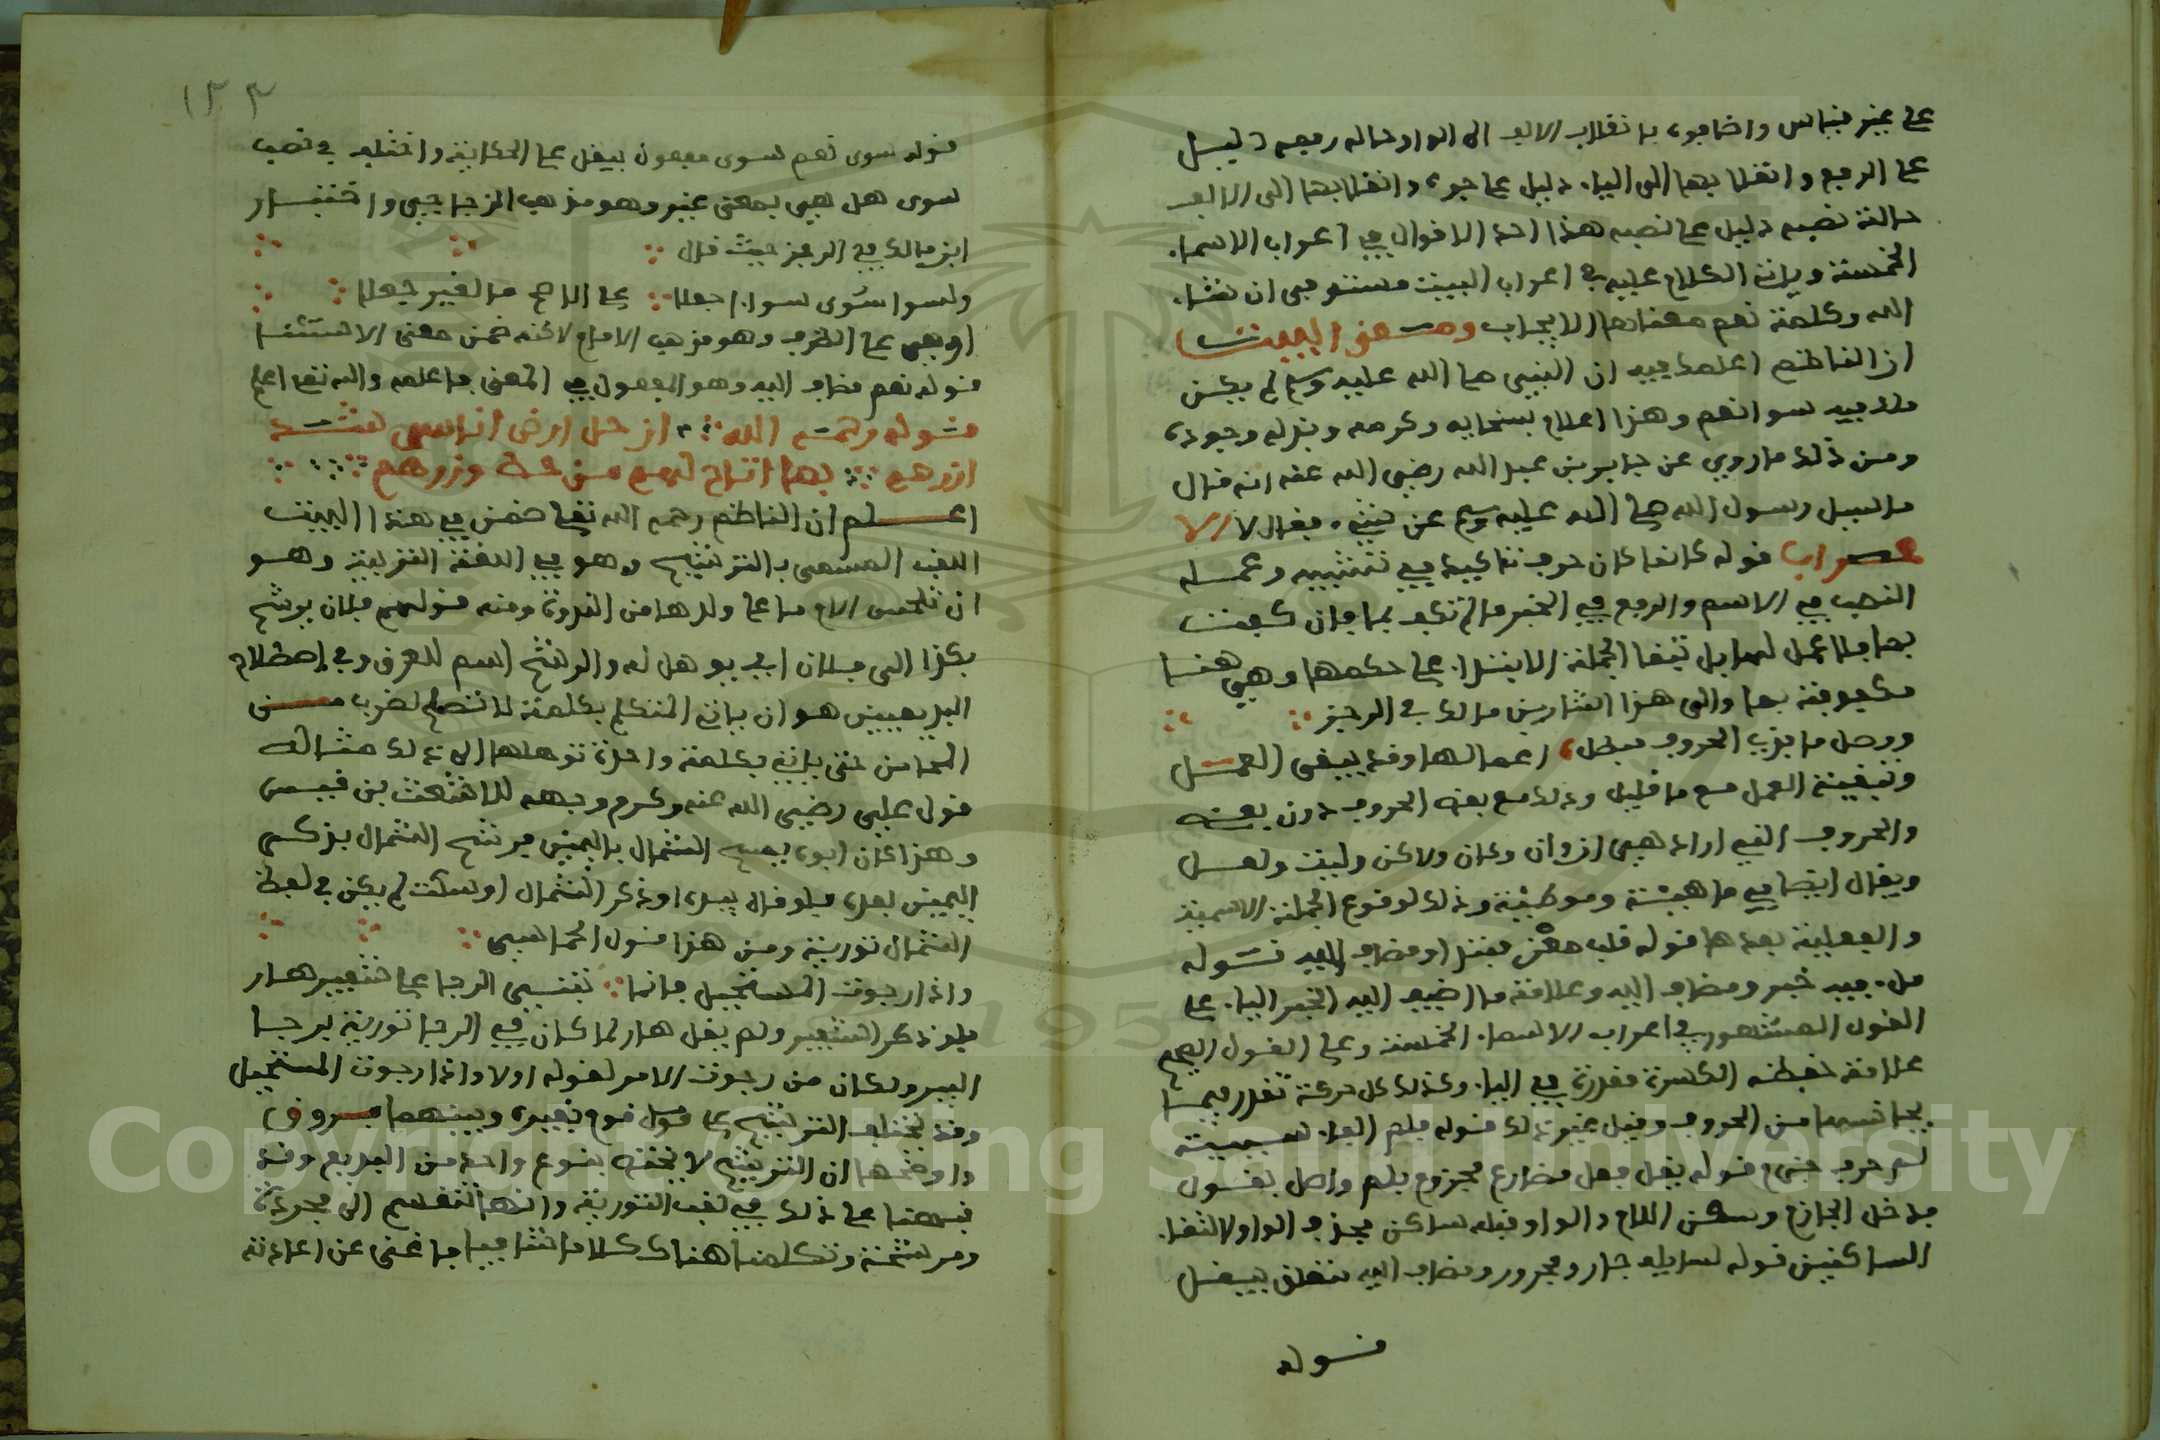 على غير قياس واضافوه بانقلاب الالف الى الواو حاله رفعه دليل
على الرفع وانقلابها الى الياء دليل على جره وانقلابها الى الالف
حالة نصبه دليل على نصبه هذا احد الاقوال في اعراب الاسماء
الخمسة وياتي الكلام عليه في اعراب البيت مستوفى ان شاء
الله وكلمة نعم معناها الايجاب ومعنى البيت
ان الناظم اعلمك فيه ان النبي صلى الله عليه وسلم لم يكن
ملء فيه سوا نعم وهذا اعلام بسخايه وكرمه وبذله وجوده
ومن ذلك ما روي عن جابر بن عبد الله رضي الله عنه انه قال
ما سيل رسول الله صلى الله عليه وسلم عن شيء فقال لا الا
عراب قوله كانما كان حرف تاكيد في تشبيه وعمله
النصب في الاسم والرفع في الخبر ما لم تكف بما فان كفت
بما فلا عمل لها بل تبقا الجملة الابتداء على حكمها وهي هنا
مكفوفة بما والى هذا اشار بن مالك في الرجز
ووصل ما بذي الحروف مبطل اعمالها وقد يبقى العمل
وتبقية العمل مع ما قليل وذلك مع بعض الحروف دون بعض
والحروف التي اراد هي ان وان وكان ولاكن وليت ولعل
ويقال ايضا في ما هيئة وموطئة وذلك لوقوع الجملة الاسمية
والفعلية بعدها قوله قلب معن مبتدا ومضاف اليه قوله
ملء فيه خبر ومضاف اليه وعلامة ما اضيف اليه الخبر الياء على
القول المشهور في اعراب الاسماء الخمسة وعلى القول الاصح
علامة خفضه الكسرة مقدرة في الياء وكذلك كل حركة تقدر فيما
يجانسها من الحروف وقيل غير ذلك قوله فلم الفاء سببية
لم حرف جزم قوله يقل فعل مضارع مجزوم بلم واصل يقول
فدخل الجازم وسكن اللام والواو قبله ساكن فحذف الواو لالتقاء
الساكنين قوله لسايله جار ومجرور ومضاف اليه متعلق بيقل
قوله
١٢٣
قوله سوى نعم سوى مفعول بيقل على الحكاية واختلف في نصب
سوى هل هي بمعنى غير وهو مذهب الزجاجي واختيار
ابن مالك في الرجز حيث قال
ولسوا سُوى سواء اجعلا على الاصح ما لغير جعلا
اوهي على الظرف وهو مذهب الامام لاكنه ضمن معنى الاستثنا
قوله نعم مضاف اليه وهو المفعول في المعنى فاعلمه والله تعالى اعلم
قوله رحمه الله ان حل ارض اناس شد
ازرهم بما اتاح لهم من حط وزرهم
اعلم ان الناظم رحمه الله تعالى ضمن في هذا البيت
اللقب المسمى بالترشيح وهو في اللغة التربية وهو
ان تلحس الام ما على ولدها من الندوة ومنه قولهم فلان يرشح
بكذا الى فلان اي يوهل له والرشح اسم للعرق وفي اصطلاح
البديعيين هو ان ياتي المتكلم بكلمة لا تصلح لضرب من
المحاسن حتى ياتي بكلمة واحدة توهلها الى ذلك مثاله
قول علي رضي الله عنه وكرم وجهه للاشعث بن قيس
وهذا كان ابوه ينسج الشمال باليمين فرشح الشمال بذكر
اليمين بعده فلو قال بيده او ذكر الشمال او سكت لم يكن في لفظ
الشمال تورية ومن هذا قول الحماسي
واذا رجوت المستحيل فانما تبتني الرجا على شفير هار
فلو ذكر الشفير ولم يقل هار لما كان في الرجا تورية برجا
البير ولكان من رجوت الامر لقوله اولا واذا رجوت المستحيل
وقد يختلف الترشيح على قول قوم بغيره وبينهما فروق
واوضحها ان الترشيح لا يختص بنوع واحد من البديع وقد
نبهنا على ذلك في لقب التورية وانها تنقسم الى مجردة
ومرشحة وتكلمنا هناك كلاما شافيا فاغنى عن اعادته